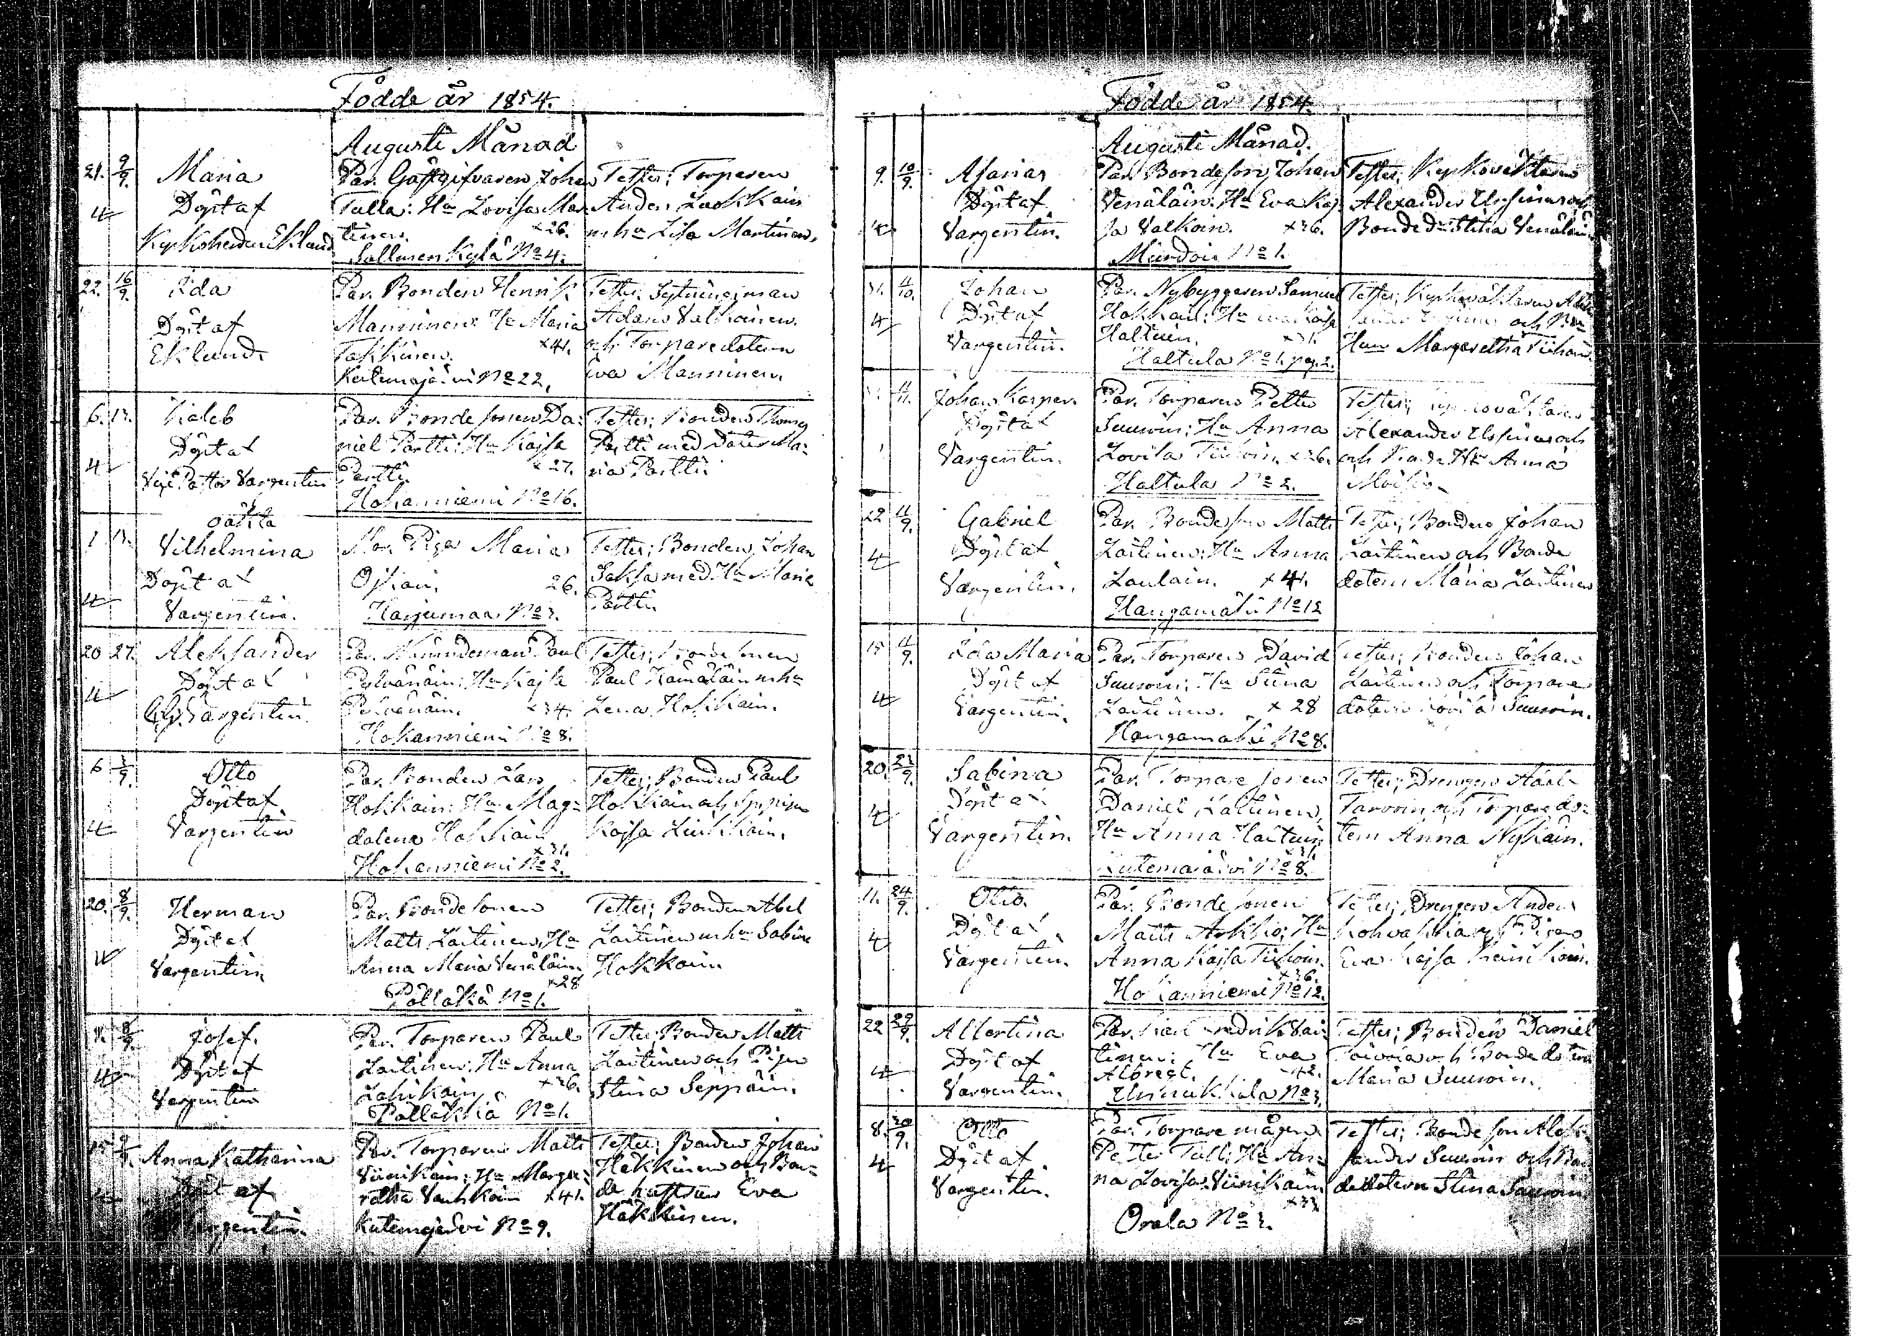 Födde år 1854.
Augusti Månad
21. 9/9. Maria
Döpt af
Kyrkoherden Eklund
4
Par. Gästgifvaren Johan
Tulla: Hu Lovisa Mar-
tinen. x26.
Sallisen Kylä No 4.
Testes; Torparen
Anders Luukkain
m hu Lisa Martinen.
22. 16/9. Ida
Döpt af
Eklund
Par. Bonden Henrik
Manninen: Hu Maria
Takkinen. x41.
Kutemajärvi No 22.
Testes; Sytningsman
Adam Valkainen
och Torparedotern
Eva Manninen.
6. 13. Kaleb
Döpt af
Vice Pastor Vargentin
4
Par. Bondesonen Da-
niel Partti: Hu Kajsa
Partti x27.
Hokanniemi No 16.
Testes; Bonden Thomas
Partti med Doter Ma-
ria Partti
1 13. oäkta
Vilhelmina
Döpt af
Vargentin.
4
Mor. Piga Maria
26.
Harjumaa No 3.
Testes; Bonden Johan
Saksa med Hu Maria
Partti.
20 27. Aleksander
Döpt af
Vargentin
4
Par. Nämndeman Paul
Pylvänäin: Hu Kajsa
Pylvänäin. x34.
Hokanniemi No 8.
Testes; Bondesonen
Paul Hämäläin m hu
Lena Hokkain.
6 3/9. Otto
Döpt af
Vargentin
4
Par. Bonden Lars
Hokkain: Hu Mag-
dalena Hokkain
x31.
Hokanniemi No 2.
Testes; Bonden Paul
Hokkain och
Kajsa Liukkain.
20. 8/9. Herman
Döpt af
Vargentin
4
Par. Bondesonen
Matts Laitinen, Hu
Anna Maria Venäläin
x28
Pölläkkä No 1.
Testes; Bonden Abel
Laitinen m hu Sabina
Hokkain
8. 8/9. Josef.
Döpt af
Vargentin
4
Par. Torparen Paul
Laitinen: Hu Anna
x26.
Pölläkkä No 1.
Testes; Bonden Matts
Laitinen och Pigan
Stina Seppäin.
15 Anna Katharina
Döpt af
Vargentin.
Par. Torparen Matts
Viinikain: Hu Marga-
retha Vauhkoin x41.
Kutemajärvi No 9.
Testes; Bonden Johan
Häkkinen och Bon-
de hustrun Eva
Häkkinen.
Födde år 1854.
Augusti Månad.
9. 10/9. Asarias
Döpt af
Vargentin.
4
Par. Bondeson Johan
Venäläin: Hu Eva Kaj-
sa Valkoin. x36.
Mundoin No 1.
Testes; Kyrkoväktaren
Alexander Elssinen och
Bonde dr Stina Venäläin.
31. 4/10. Johan
Döpt af
Vargentin.
4
Par. Nybyggaren Samuel
Hokkain: Hu Eva Kajsa
Haltuin. x31.
Haltula No 1. pag. 2.
Testes; Kyrkoväktaren Alek-
sander Elssinen och Bon
Hun Margaretha Tiihoin.
Johan Kasper.
Döpt af
Vargentin.
Par. Torparen Petter
Suuroin: Hu Anna
Lovisa Tiihoin. x36.
Haltula No 2.
Testes; Kyrkoväktaren
Alexander Elssinen och
och Bonde Hu Anna
22 11/9. Gabriel
Döpt af
Vargentin.
4
Par. Bondeson Matts
Laitinen: Hu Anna
Laulain. x41.
Hangamäki No 12
Testes; Bonden Johan
Laitinen och Bonde
dotern Maria Laitinen
15 11/9. Ida Maria
Döpt af
Vargentin.
4
Par. Torparen David
Suuroin: Hu Stina
Laitinen. x28
Hangamäki No 8.
Testes; Bonden Johan
Laitinen och Torpare
dotern Lovisa Suuroin.
20. 21/9. Sabina
Döpt af
Vargentin.
4
Par. Torpare sonen
Daniel Laitinen,
Hu Anna Haituin
x31.
Kutemajärvi No 8.
Testes; Drengen Adolf
Tarvoin och Torparedo-
tern Anna Nykäin.
11. 24/9. Otto.
Döpt af
Vargentin.
4
Par. Bondesonen
Matts Arkkio; Hu
Anna Kajsa Tiihoin.
x36.
Hokanniemi No 12.
Testes; Drengen Anders
Kohvakka och Pigan
Eva Kajsa
22 29/9. Albertina
Döpt af
Vargentin.
4
Par. Karl Fredrik Lai-
tinen: Hu Eva
Albrest. x42.
No 3.
Testes; Bonden Daniel
Tarvoin och Bonde dotern
Maria Suuroin.
8. 30/9. Otto
Döpt af
Vargentin.
4
Par. Torpare mågen
Petter Tulli: Hu An-
na Lovisa Viinikäin
x33.
Orala No 3.
Testes; Bondeson Alek-
sander Suuroin och Bon
dedotern Stina Suuroin.